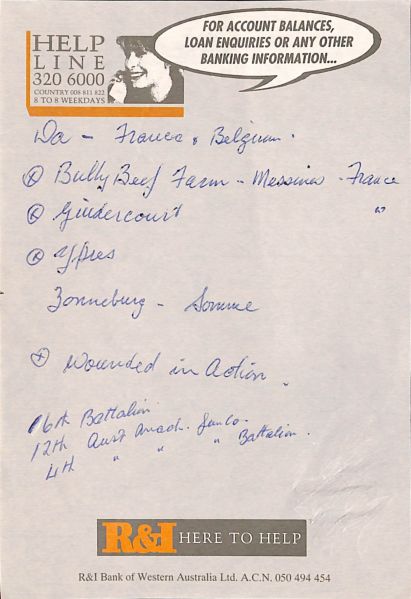 HELP
LINE
320 6000
COUNTRY 008 811 822
8 TO 8 WEEKDAYS
FOR ACCOUNT BALANCES,
LOAN ENQUIRIES OR ANY OTHER
BANKING INFORMATION...
Da - France & Belgium.
Bully Beef Farm - Messines - France
Guidercourt "
Ypres
Zonneburg - Somme
Wounded in Action
16th Battalion
12th Aust Mach. Gun Co.
4th " " " Battalion.
R&I HERE TO HELP
R&I Bank of Western Australia Ltd. A.C.N. 050 494 454